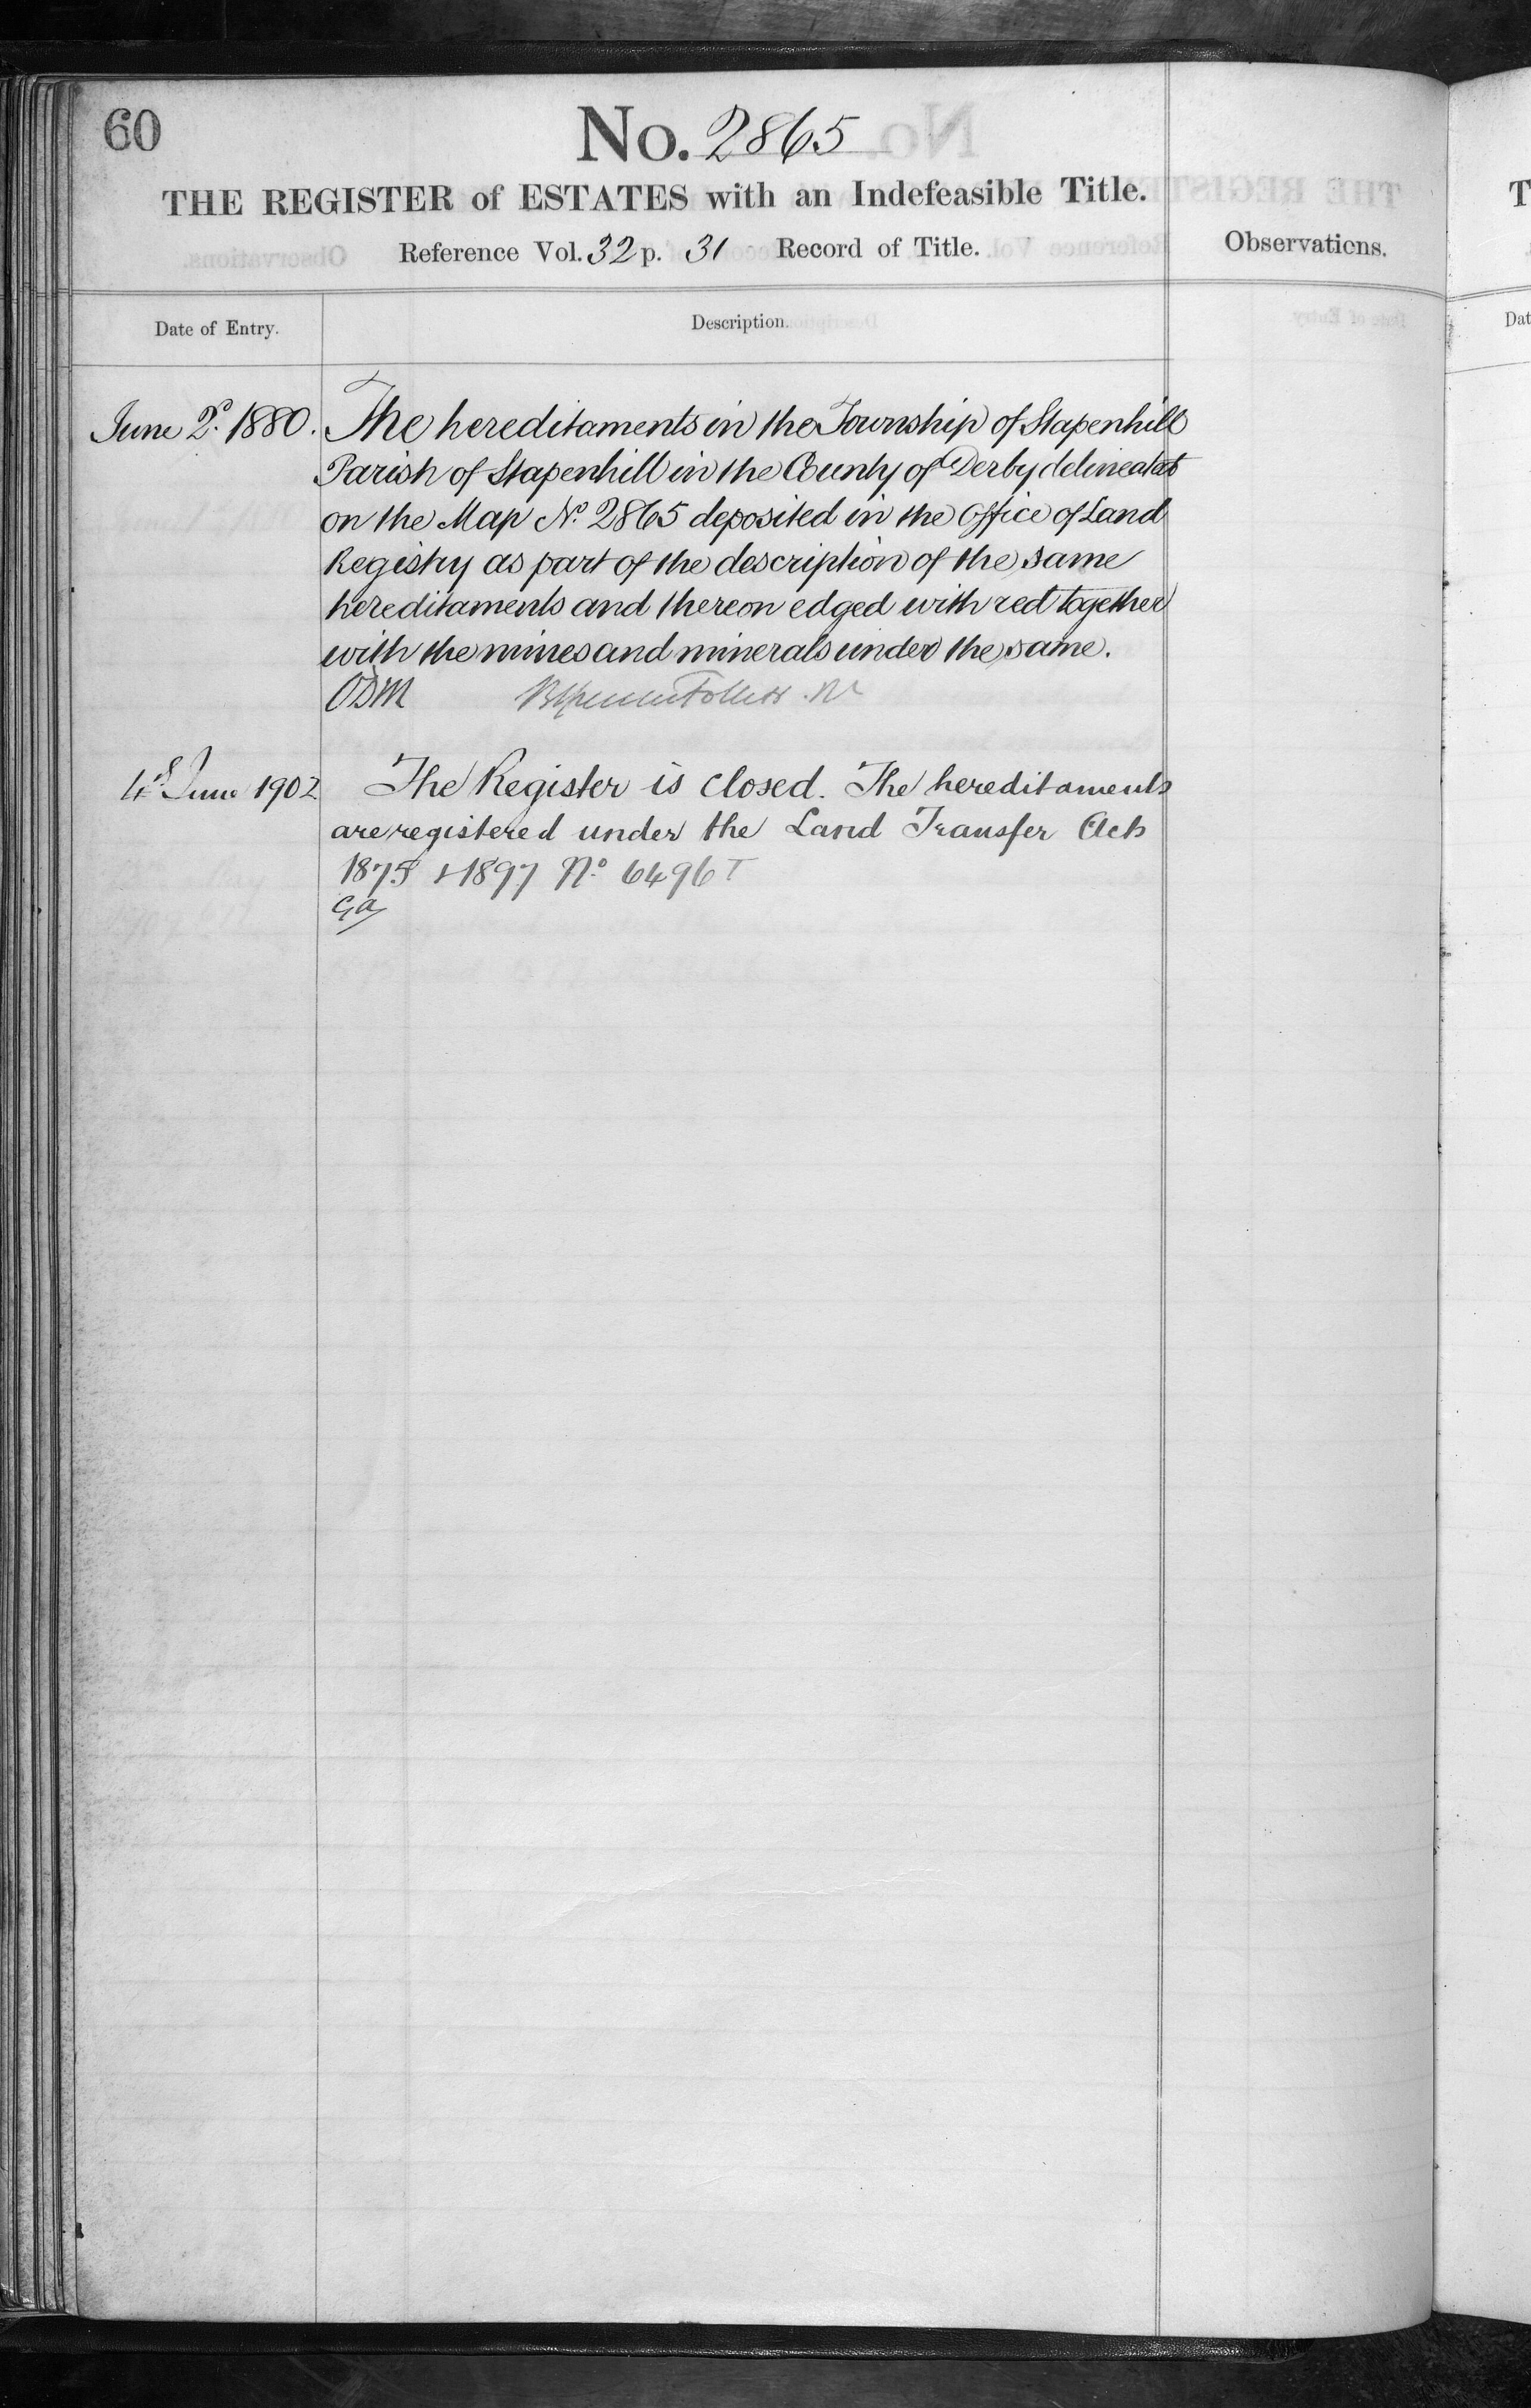 60
No. 2865
THE REGISTER of ESTATES with an Indefeasible Title.
Reference Vol. 32 p. 31 Record of Title.
Observations.
Date of Entry.
Description.
June 2d. 1880. The hereditaments in the Township of Stapenhill
Parish of Stapenhill in the County of Derby delineated
on the Map No. 2865 deposited in the Office of Land
Registry as part of the description of the same
hereditaments and thereon edged with red together
with the mines and minerals under the same.
4th June 1902 The Register is closed. The hereditaments
are registered under the Land Transfer Acts
1875 & 1897 No 6496 T